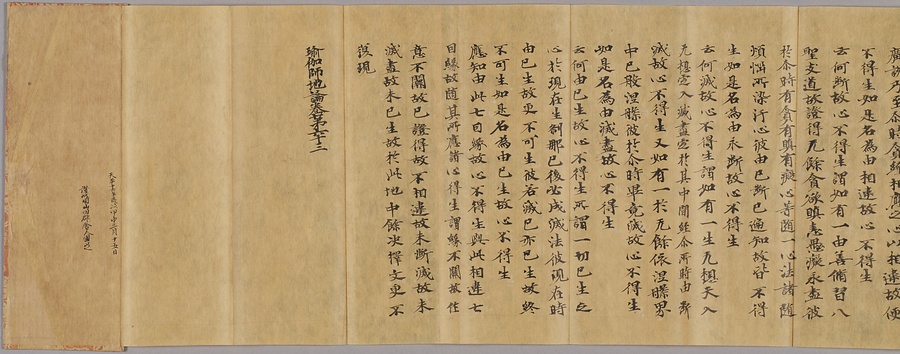 不得生如是名為由相違故心不得生
云何斷故心不得生謂如有一由善修習八
聖支道故證得无餘貪欲瞋恚愚癡永盡彼
於尒時有貪有瞋有癡心等隨一心法諸隨
煩惱所染汙心彼由已斷已遍知故皆不得
生如是名為由永斷故心不得生
云何滅故心不得生謂如有一生无想天入
无想定入滅盡定於其中間經尒所時由暫
滅故心不得生又如有一於无餘依涅槃界
中已般涅槃彼於尒時畢竟滅故心不得生
如是名為由滅盡故心不得生
云何由已生故心不得生所謂一切已生之
心於現在生剎那已後必成滅法彼現在時
由已生故更不可生彼若滅已亦已生故終
不可生如是名為由已生故心不得生
應知由此七因緣故心不得生與此相違七
因緣故隨其所應諸心得生謂緣不闕故作
意不闕故已證得故不相違故未斷滅故未
滅盡故未已生故於此地中餘決擇文更不
復現
瑜伽師地論卷第五十三